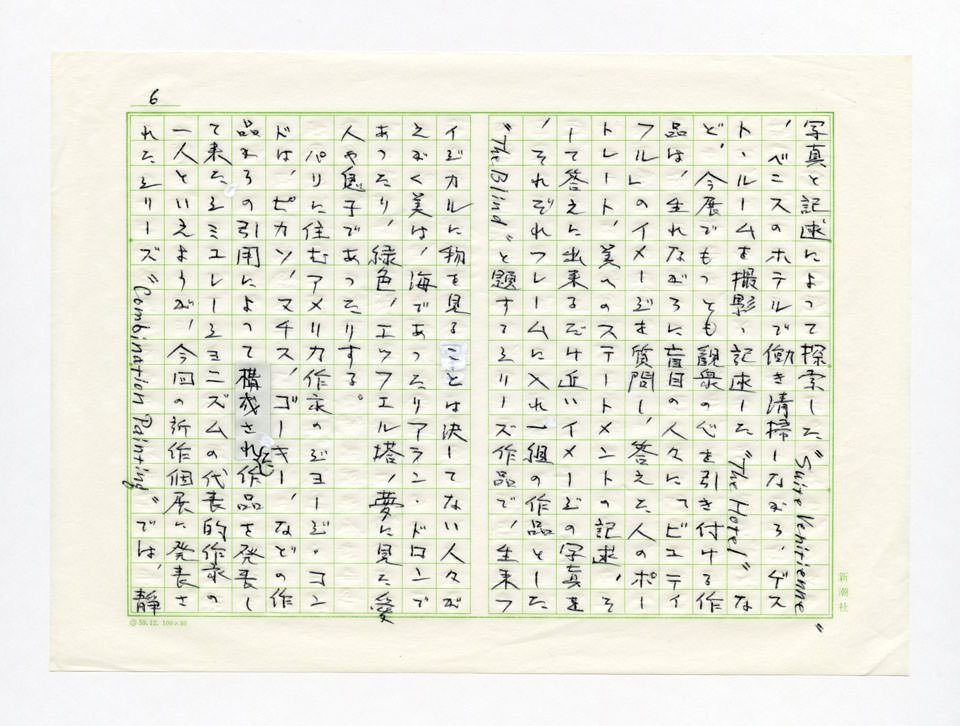 6
写真と記述によって探索した"Suite Venitienne"
、ベニスのホテルで働き清掃しながら、ゲス
ト・ルームを撮影、記述した"The Hotel"な
ど、今展でもっとも観衆の心を引き付ける作
品は、生れながらに盲目の人々にてビュティ
フルのイメージを質問し、答えた人のポー
トレート、美へのステートメントの記述、そ
して答えに出来るだけ近いイメージの写真を
、それぞれフレームに入れ一組の作品とした
"The Blind"と題するシリーズ作品で、生来フ
イジカルに物を見ることは決してない人々が
えがく美は、海であったりアラン・ドロンで
あったり、緑色、エッフエル塔、夢に見た愛
人や息子であったりする。
パリに住むアメリカ作家のジョージ・コン
ドは、ピカソ、マチス、ゴーキー、などの作
品からの引用によって構成された作品を発表し
て来たシミュレーショニズムの代表的作家の
一人といえようが、今回の新作個展に発表さ
れたシリーズ"Combination Painting"では、静
新潮社
59.12. 100×80